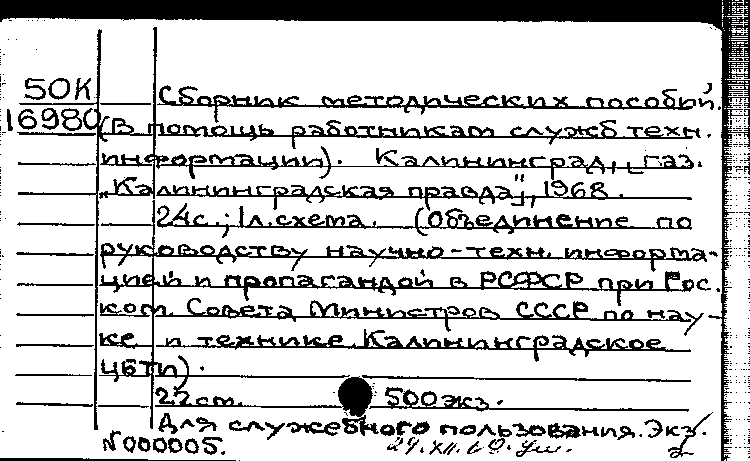 50К
16980
Сборник методических пособий.
(В помощь работникам служб техн.
информации). Калининград, газ.
„Калининградская правда", 1968.
24с.; 1л.схема. (Объединение по
руководству научно-техн. информа-
цией и пропагандой в РСФСР при Гос.
ком. Совета Министров СССР по нау-
ке и технике Калининградское
ЦБТИ).
22см. 500экз.
Для служебного пользования. Экз.
N000005.